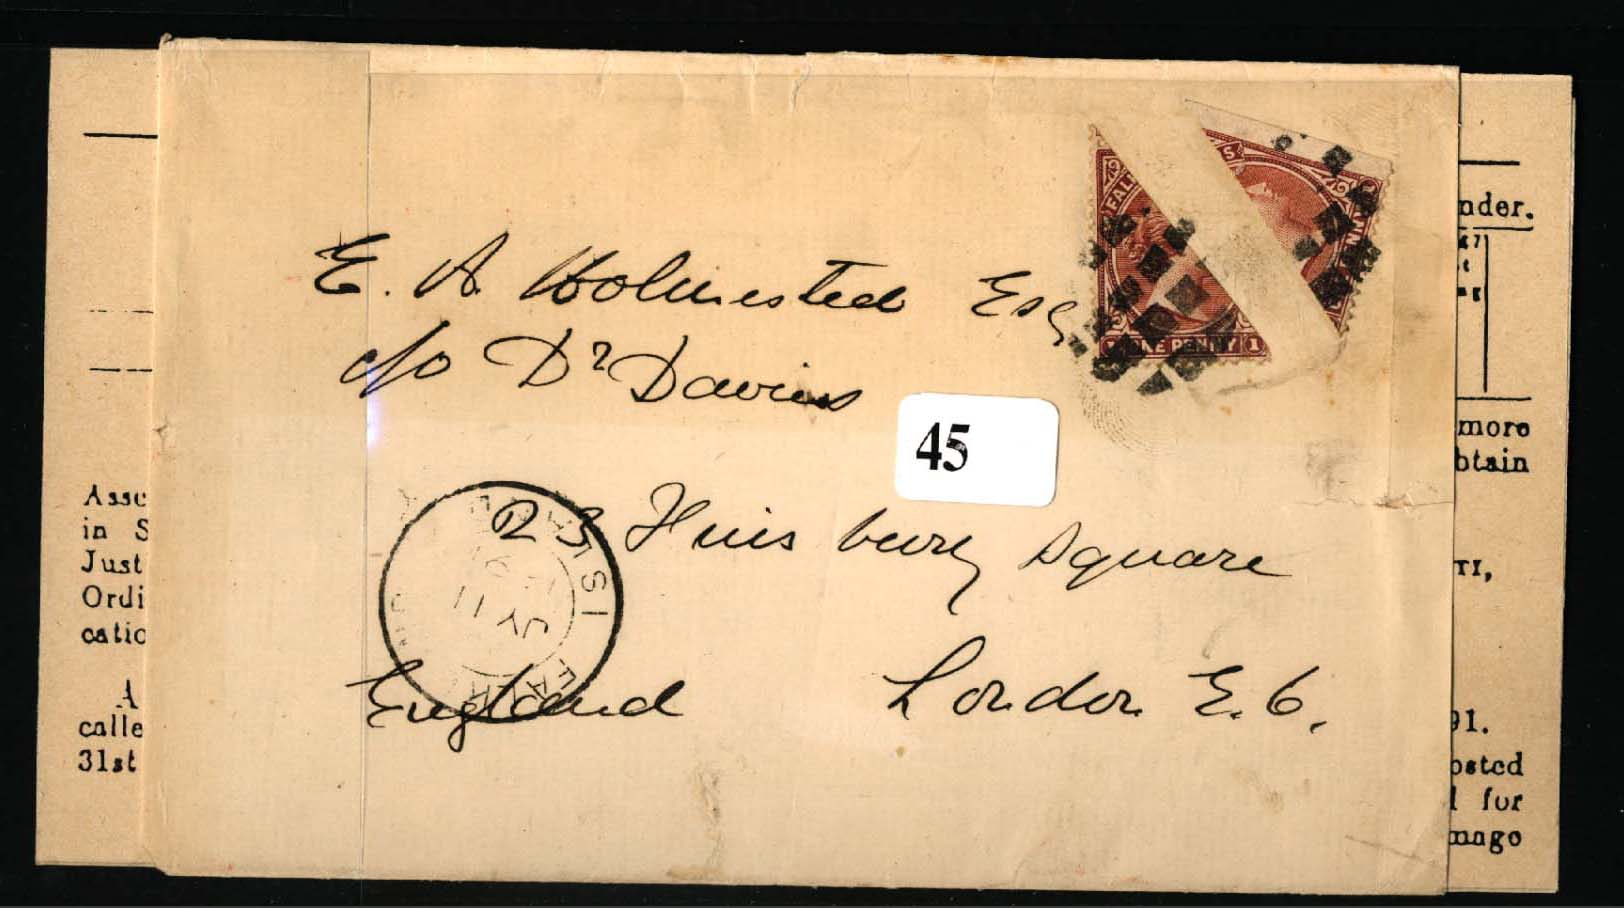 nder.
E. A Holmested Esq
c/o Dr Davies
45
more
btain
Assc
in S
Just
Ordi
catio
23 Finsbury Square
TI,
England London E.C.
A
calle
31st
91.
osted
l for
mage
FAL
S
NNY
ONE PENNY 1
FALKLAND ISLANDS
JY 11
91